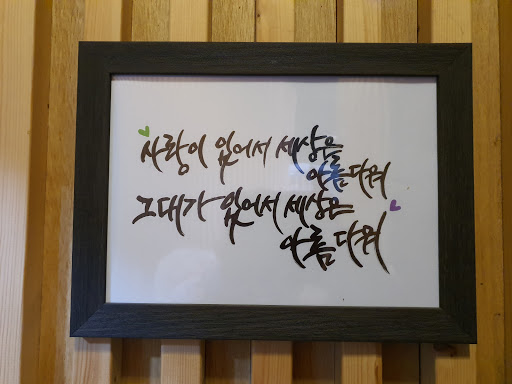 사랑이 있어서 세상은
아름다워
그대가 있어서 세상은
아름다워